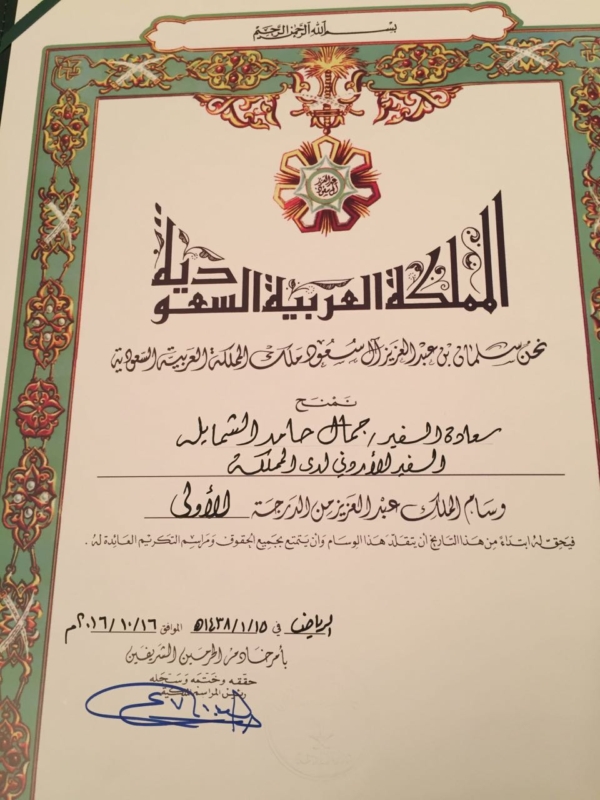 بسم الله الرحمن الرحيم
المملكة العربية السعودية
نحن سلمان بن عبدالعزيز آل سعود ملك المملكة العربية السعودية
نمنح
سعادة السفير / جمال حامد الشمايله
السفير الأردني لدى المملكة
وسام الملك عبدالعزيز من الدرجة الأولى
فيحق له ابتداءً من هذا التاريخ أن يتقلد هذا الوسام وأن يتمتع بجميع الحقوق ومراسم التكريم العائدة له.
الرياض في ١٤٣٨/١/١٥هـ الموافق ٢٠١٦/١٠/١٦م
بأمر خادم الحرمين الشريفين
حققه وختمه وسجله
رئيس المراسم الملكية